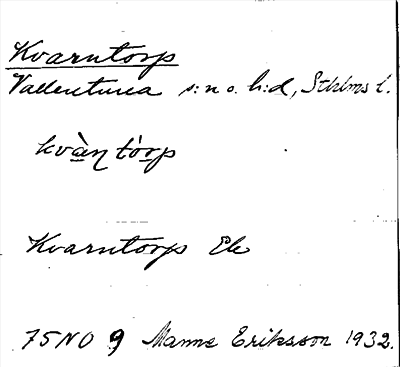 Kvarntorp
Vallentuna s:n o. h:d, Sthlms l.
kvàn̩ tórp
Kvarntorp Ek
75NO 9 Manne Eriksson 1932.